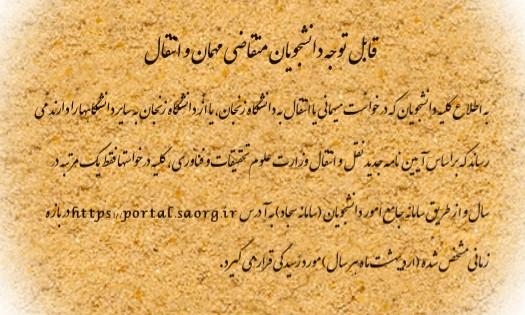 قابل توجه دانشجویان متقاضی مهمان و انتقال
به اطلاع کلیه دانشجویان که درخواست میهمانی یا انتقال به دانشگاه زنجان، یا از دانشگاه زنجان به سایر دانشگاهها را دارند می
رساند که براساس آیین نامه جدید نقل و انتقال وزارت علوم تحقیقات و فناوری، کلیه درخواستها فقط یک مرتبه در
سال و از طریق سامانه جامع امور دانشجویان (سامانه سجاد) به آدرس https://portal.saorg.ir در بازه
زمانی مشخص شده (اردیبهشت ماه هر سال) مورد رسیدگی قرار می گیرد.